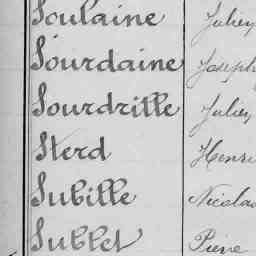 Soulaine Julien
Sourdaine Joseph
Sourdrille Julien
Sterd Henri
Subille Nicolas
Sublet Pierre